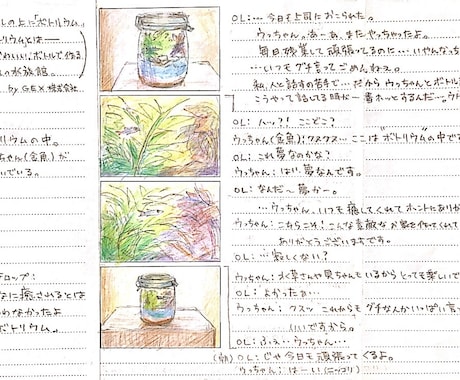 しの上に「ボトリウム」
トリウム」とは―
かわいい、ボトルで作る
ムの水族館。
by GEX 株式会社
トリウムの中。
ちゃん(金魚)が
いでいる。
ロップ:
なに癒されるとは
わなかったよ
ボトリウム。
OL:… 今日も上司におこられた。
ウっちゃん。あーあ、またやっちゃったよ。
毎日残業して頑張ってるのに…いやんなっちゃ
…いつもグチ言ってごめんねぇ。
私、人と話すの苦手で…だから ウっちゃんとボトル
こうやって話してる時が一番ホッとするんだ…。ウト
OL:ハッ?! ここどこ?
ウっちゃん(金魚):クスクス… ここは"ボトリウム"の中です
OL:これ夢なのかな?
ウっちゃん:はい。夢なんです。
OL:なんだ〜夢かー。
…ウっちゃん、いつも癒してくれてホントにあり
ウっちゃん:こちらこそ! こんな素敵なお家を作ってくれて
ありがとうございますです。
OL:…寂しくない?
ウっちゃん:水草さんや貝ちゃんもいるからとっても楽しいで
OL:よかったョ…
ウっちゃん:クスッ これからも グチなんかいっぱい言っ
いいですから。
OL:ふぇ…ウっちゃん…
(朝) OL:じゃ今日も頑張ってくるよ。
ウっちゃん:はーい(ニッコリ)